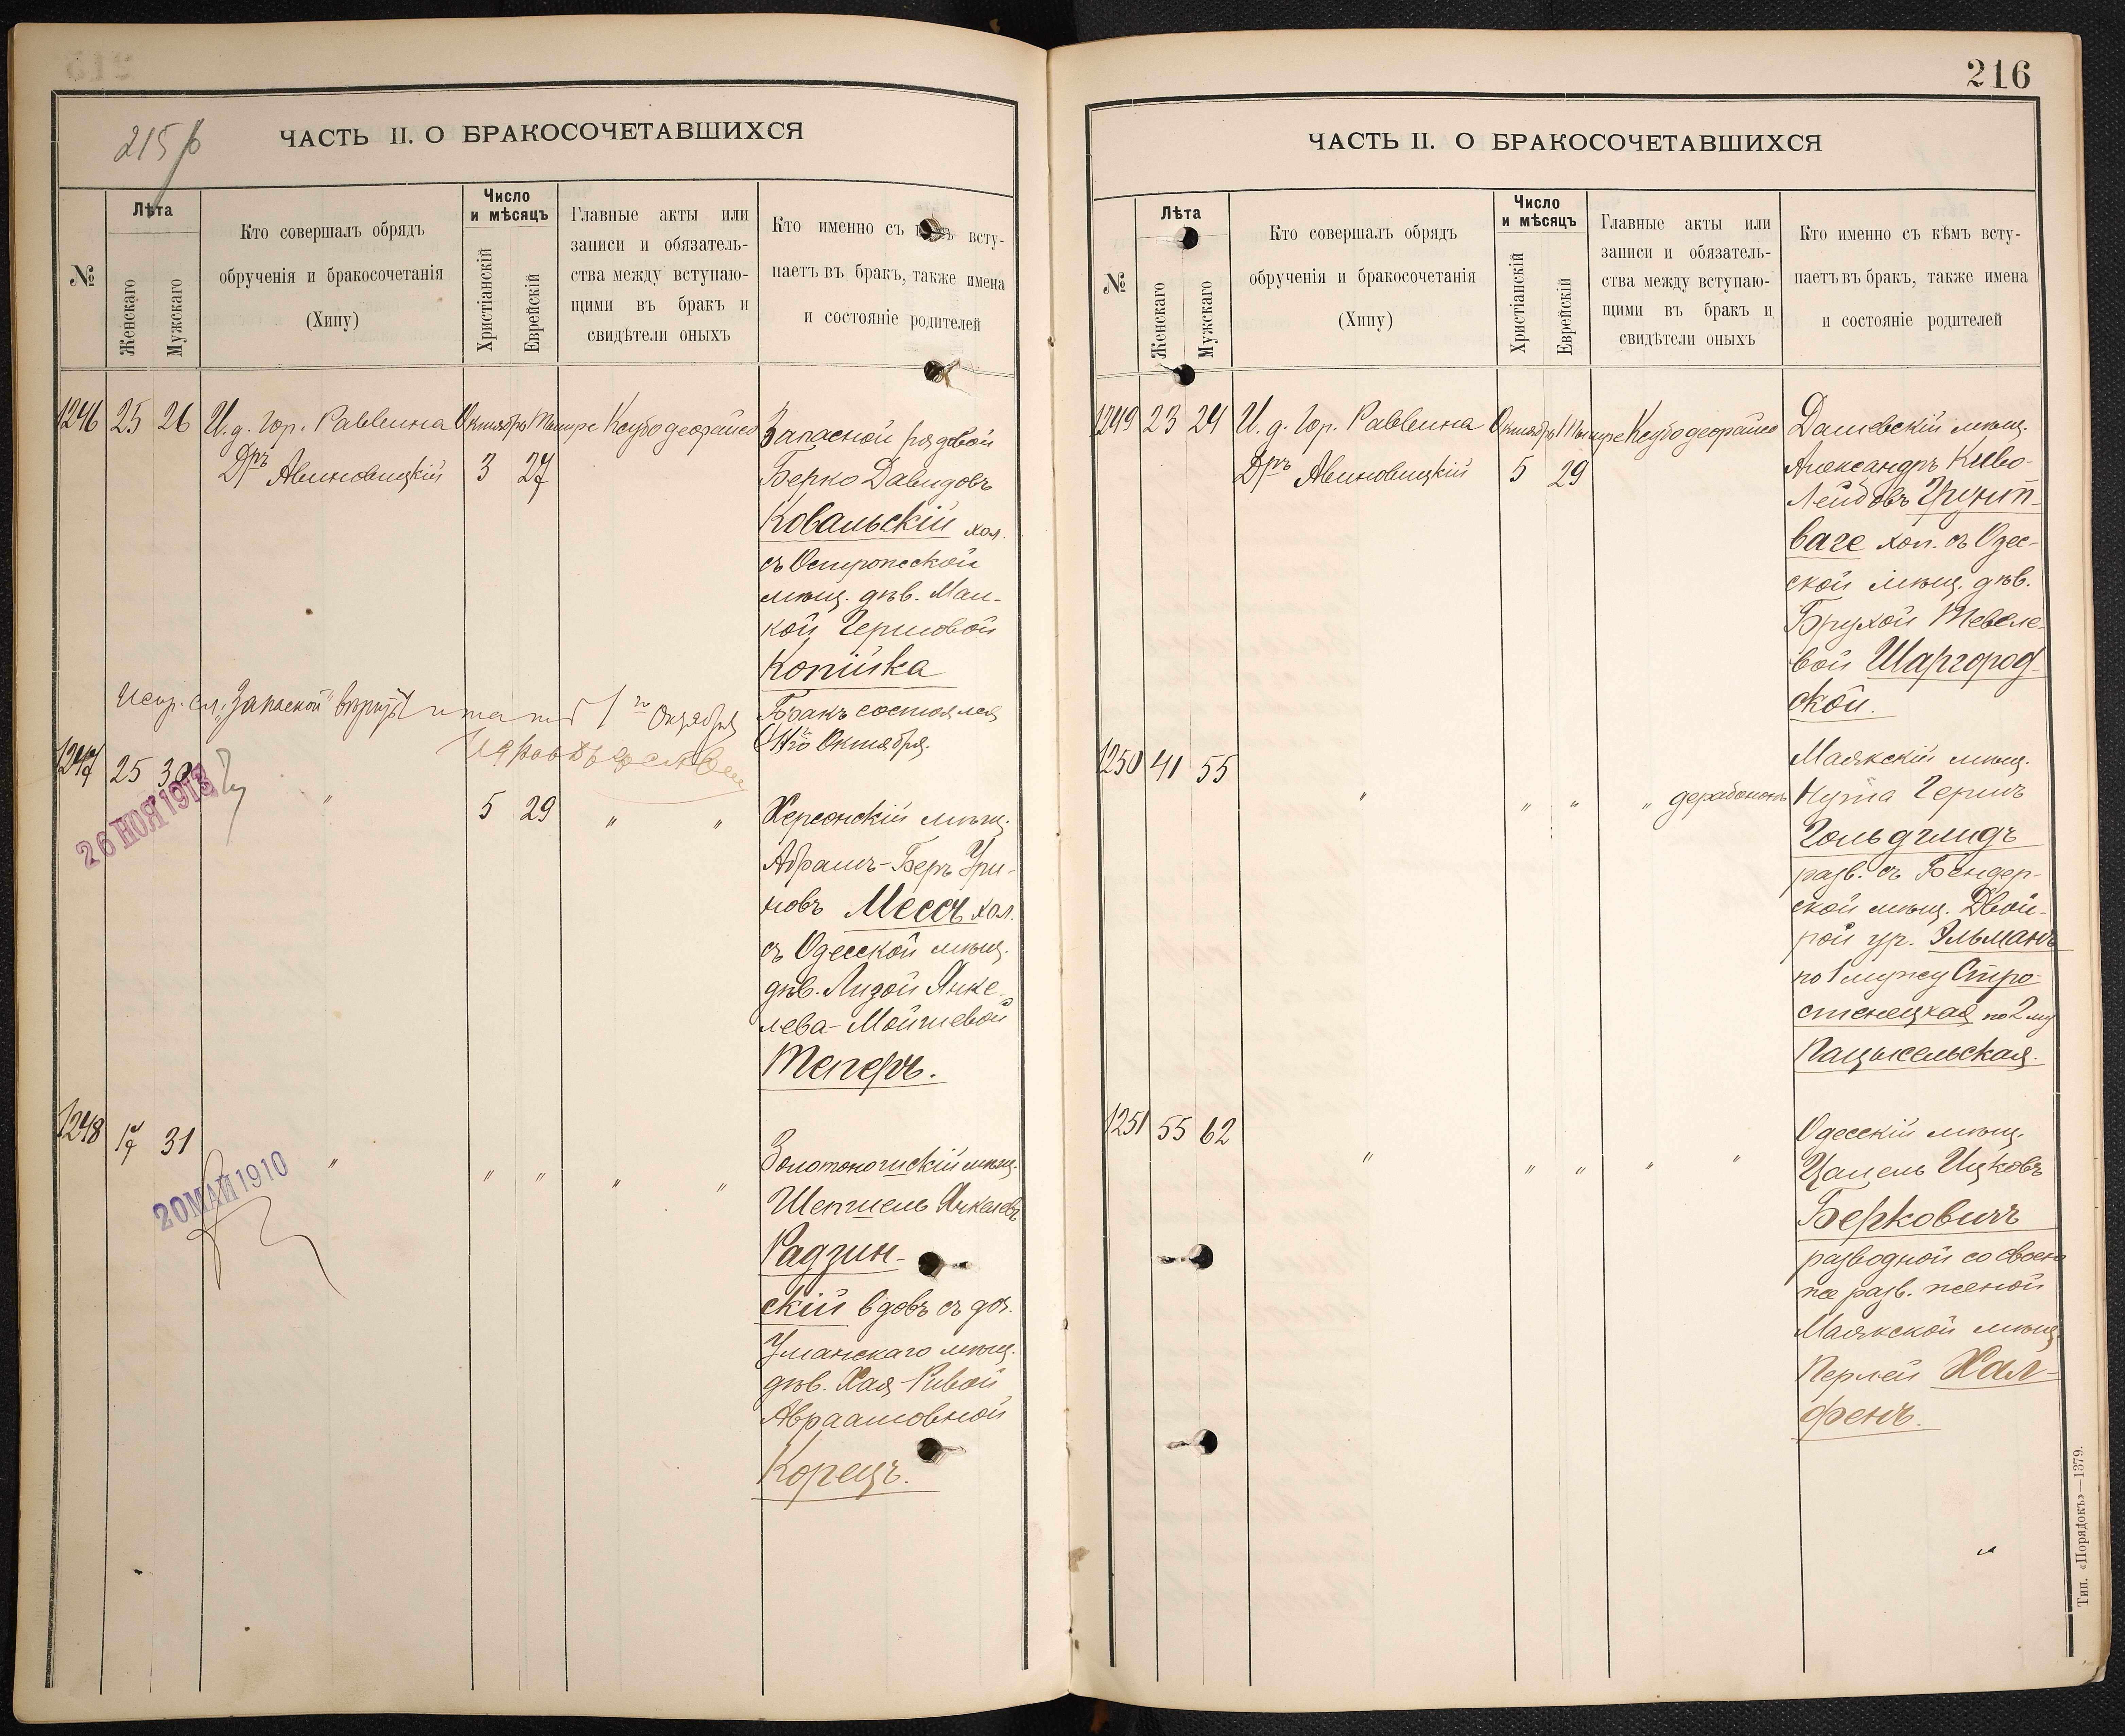 215 б
ЧАСТЬ II. О БРАКОСОЧЕТАВШИХСЯ
№
Лѣта
Женскаго
Мужскаго
Кто совершалъ обрядъ
обрученія и бракосочетанія
(Хипу)
Число
и мѣсяцъ
Христіанскій
Еврейскій
Главные акты или
записи и обязатель-
ства между вступаю-
щими въ бракъ и
свидѣтели оныхъ
Кто именно съ всту-
паетъ въ бракъ, также имена
и состояніе родителей
1246 25 26 И. д. Гор. Раввина Октябрь Тишре Ксубо деорайсо
Дръ Авиновицкій 3 27
Запасной рядовой
Берко Давидовъ
Ковальскій хол.
съ Остропеской
мѣщ. дѣв. Мал-
кой Гершовой
Копiйка
Бракъ состоялся
1го Октября.
Испр. сл. "Запасной"
1го Октября
1247 25 30 " 5 29 " "
26 НОЯ 1913
Херсонскій мѣщ.
Абрамъ-Беръ Ури-
новъ Мессъ хол.
съ Одесской мѣщ.
дѣв. Лизой Янке-
лева-Мойшевой
Теперъ.
1248 17 31 " " " " "
20 МАЙ 1910
Золотоношскій мѣщ.
Шепшель Янкелевъ
Радзин-
скій вдовъ съ доч.
Уманскаго мѣщ.
дѣв. Хая-Ривой
Авраамовной
Корецъ.
216
ЧАСТЬ II. О БРАКОСОЧЕТАВШИХСЯ
№
Лѣта
Женскаго
Мужскаго
Кто совершалъ обрядъ
обрученія и бракосочетанія
(Хипу)
Число
и мѣсяцъ
Христіанскій
Еврейскій
Главные акты или
записи и обязатель-
ства между вступаю-
щими въ бракъ и
свидѣтели оныхъ
Кто именно съ кѣмъ всту-
паетъ въ бракъ, также имена
и состояніе родителей
1249 23 24 И. д. Гор. Раввина Октябрь Тишре Ксубо деорайсо
Дръ Авиновицкій 5 29
Дашевскій мѣщ.
Александръ Киво-
Лейбовъ Грунт-
ваге хол. съ Одес-
ской мѣщ. дѣв.
Брухой Тевеле-
вой Шаргород-
ской.
1250 41 55 " " " " дерабононъ
Маякскій мѣщ.
Нута Гершъ
Гольдшмидъ
разв. съ Бендер-
ской мѣщ. Двой-
рой ур. Эльманъ
по 1 мужу Стро-
стенецкая по 2 му
Пацысельская.
1251 55 62 " " " " "
Одесскій мѣщ.
Цалель Ицковъ
Берковичъ
разводной со своею
же разв. женой
Маякской мѣщ.
Перлей Хал-
фенъ.
Тип. «Порядокъ»—1379.